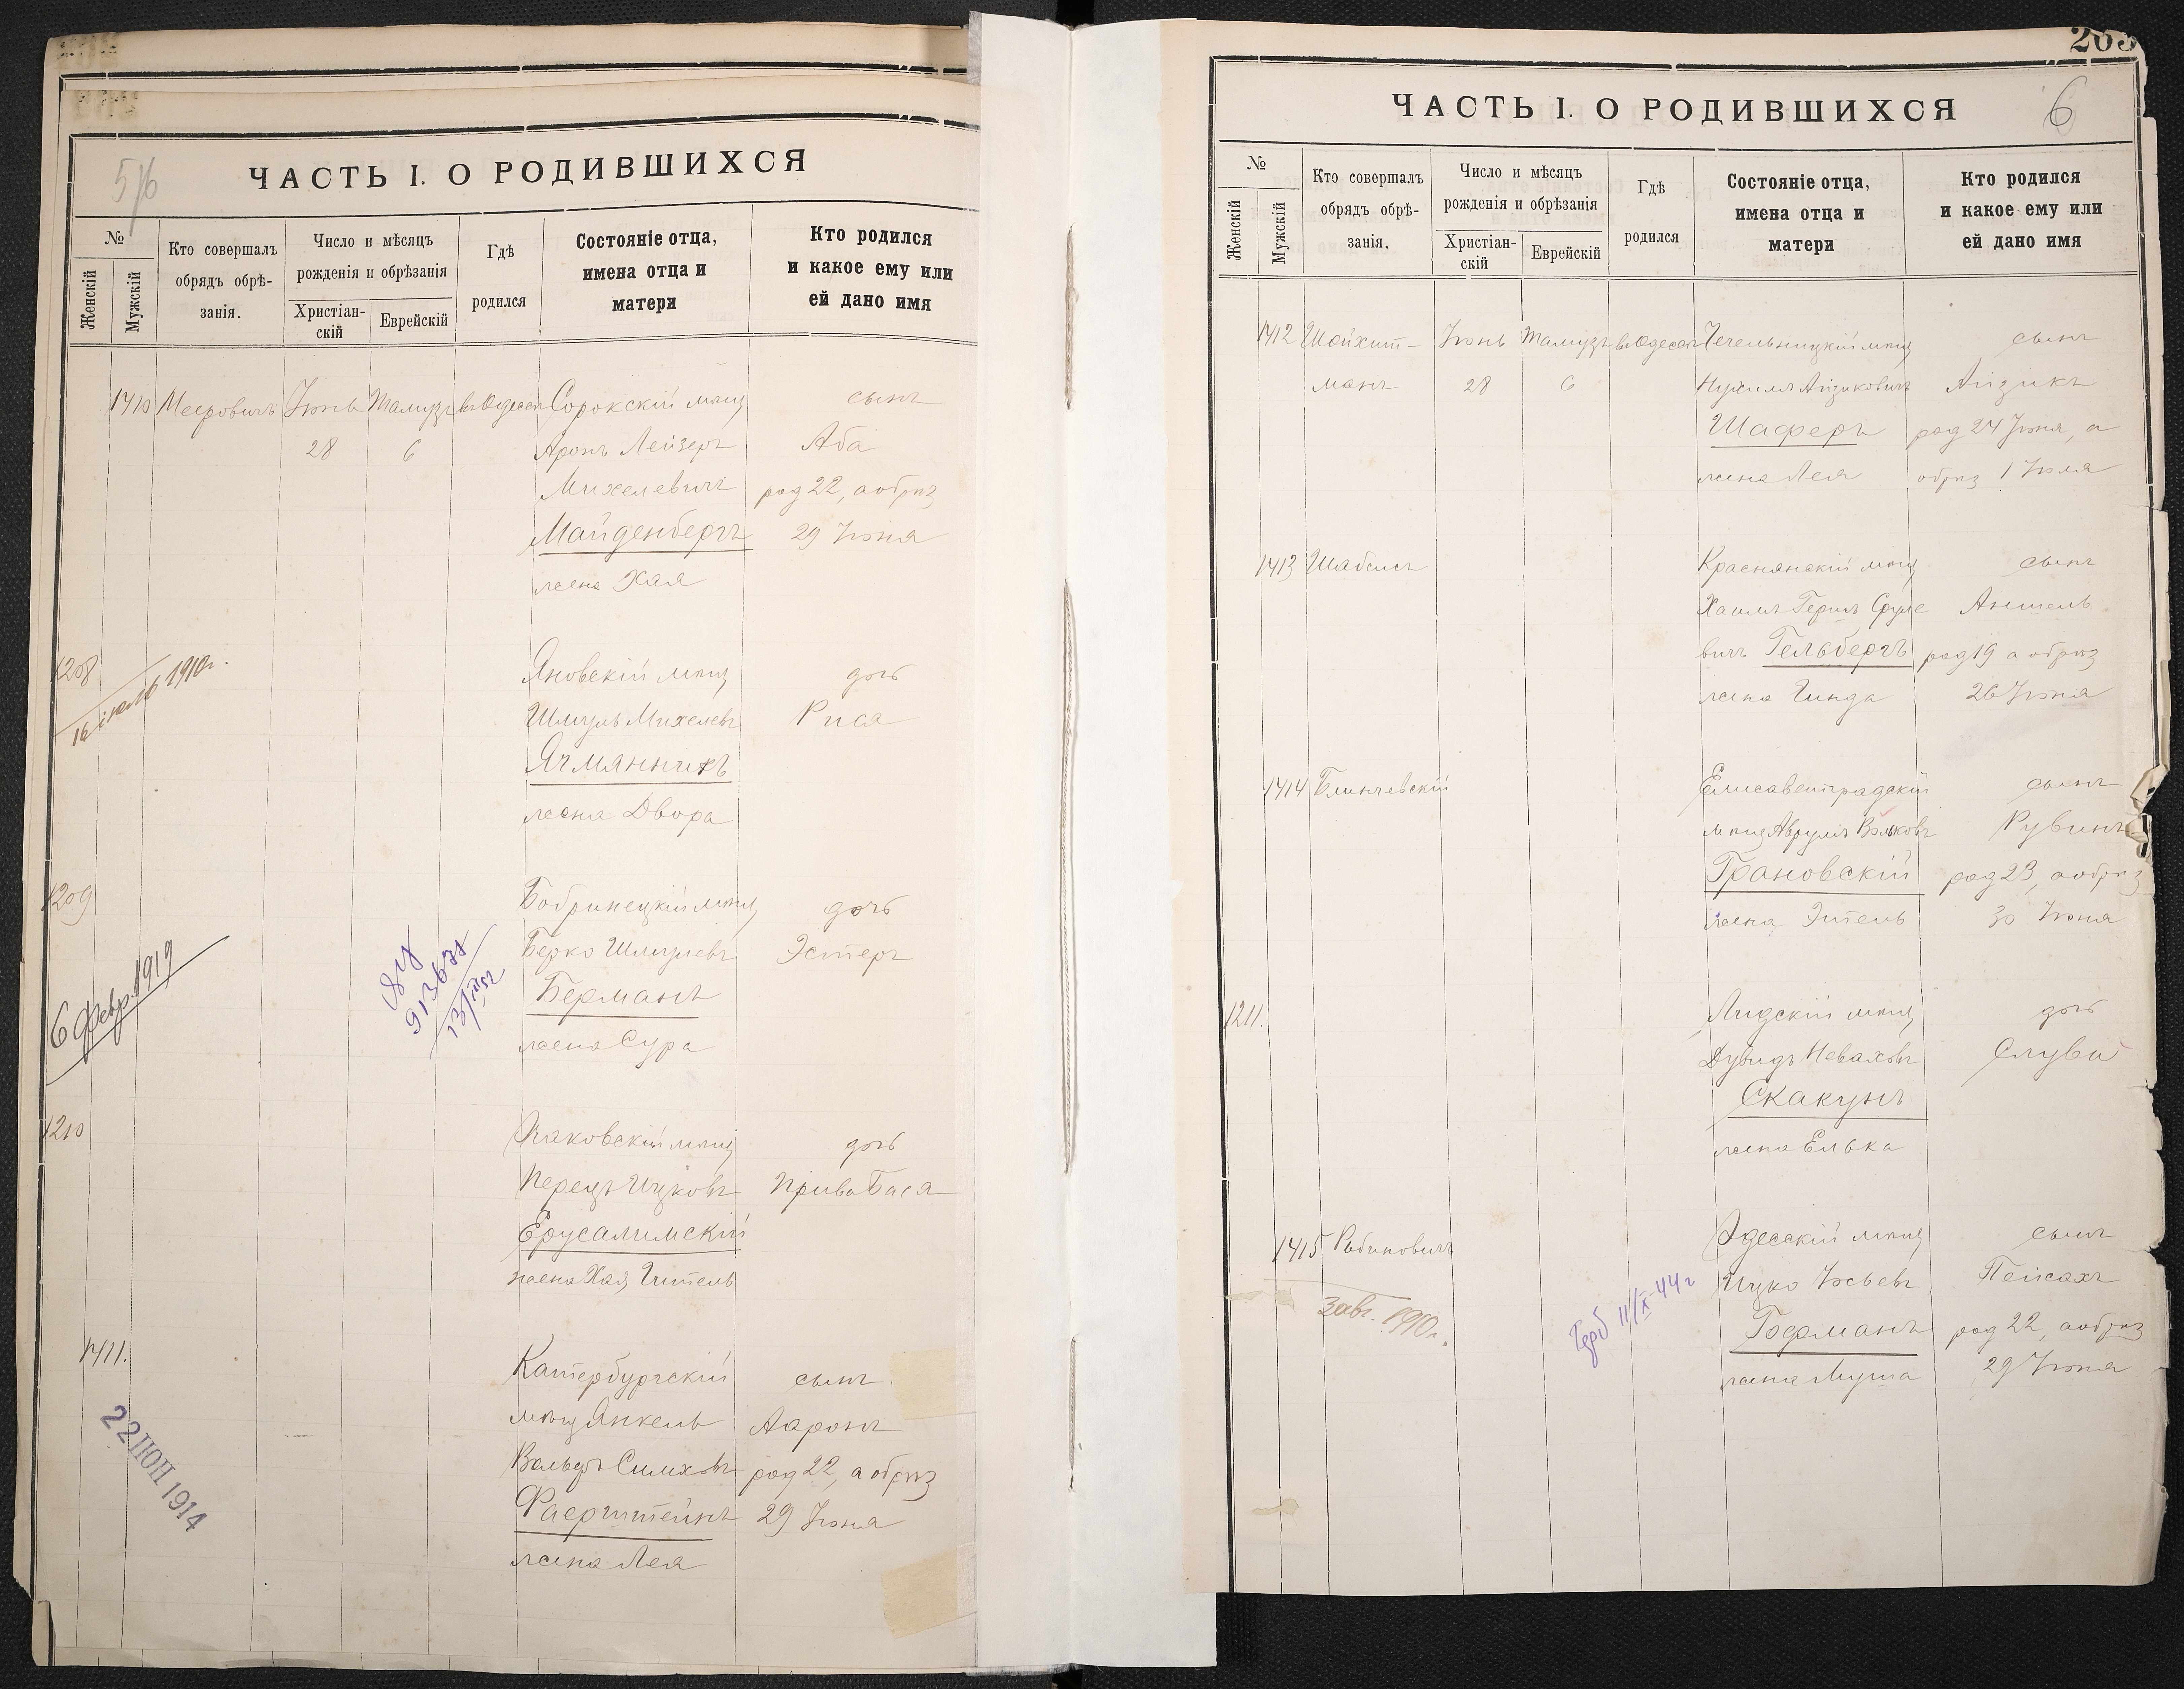 5/6
ЧАСТЬ I. О РОДИВШИХСЯ
№
Женскій
Мужскій
Кто совершалъ
обрядъ обрѣ-
занія.
Число и мѣсяцъ
рожденія и обрѣзанія
Христіан-
скій
Еврейскій
Гдѣ
родился
Состояніе отца,
имена отца и
матери
Кто родился
и какое ему или
ей дано имя
1410 Мееровичъ Іюнь Тамузъ въ Одессѣ Сорокскій мѣщ сынъ
28 6 Аронъ Лейзеръ Аба
Михелевичъ род 22, а обрѣз
Майденбергъ 29 Іюня
жена Хая
1208 Яновскій мѣщ дочь
16 іюль 1910г. Шмуль Михелевъ Рися
Ячмянникъ
жена Двора
1209 Бобринецкій мѣщ дочь
Берко Шмулевъ Эстеръ
6 февр. 1919
Берманъ
913671
13/III 52
жена Сура
1210 Раковскій мѣщ дочь
Перецъ Ицковъ Прива Бася
Ерусалимскій
жена Хая Гитель
1411. Катербургскій сынъ
мѣщ Янкель Ааронъ
22 ІЮН 1914
Вольфъ Симховъ род 22, а обрѣз
Фаерштейнъ 29 Іюня
жена Лея
203
6
ЧАСТЬ I. О РОДИВШИХСЯ
№
Женскій
Мужскій
Кто совершалъ
обрядъ обрѣ-
занія.
Число и мѣсяцъ
рожденія и обрѣзанія
Христіан-
скій
Еврейскій
Гдѣ
родился
Состояніе отца,
имена отца и
матери
Кто родился
и какое ему или
ей дано имя
1412 Шойхет- Іюнь Тамузъ въ Одессѣ Чечельницкій мѣщ сынъ
манъ 28 6 Нухимъ Айзиковичъ Айзикъ
Шаферъ род 24 Іюня, а
жена Лея обрѣз 1 Іюля
1413 Шабсисъ Краснянскій мѣщ сынъ
Хаимъ Гершъ Сруле Аншель
вичъ Гельбергъ род 19 а обрѣз
жена Гинда 26 Іюня
1414 Блинчевскій Елисаветградскій сынъ
мѣщ Аврумъ Вольковъ Рувинъ
Грановскій род 23, а обрѣз
жена Этель 30 Іюня
1211. Лидскій мѣщ дочь
Дувидъ Неваховъ Слува
Скакунъ
жена Елька
1415 Рабиновичъ Одесскій мѣщ сынъ
Ицко Іосьевъ Пейсахъ
3 авг. 1910г.
Герб 11/X-44г
Берманъ род 22, а обрѣз
жена Муша 29 Іюня